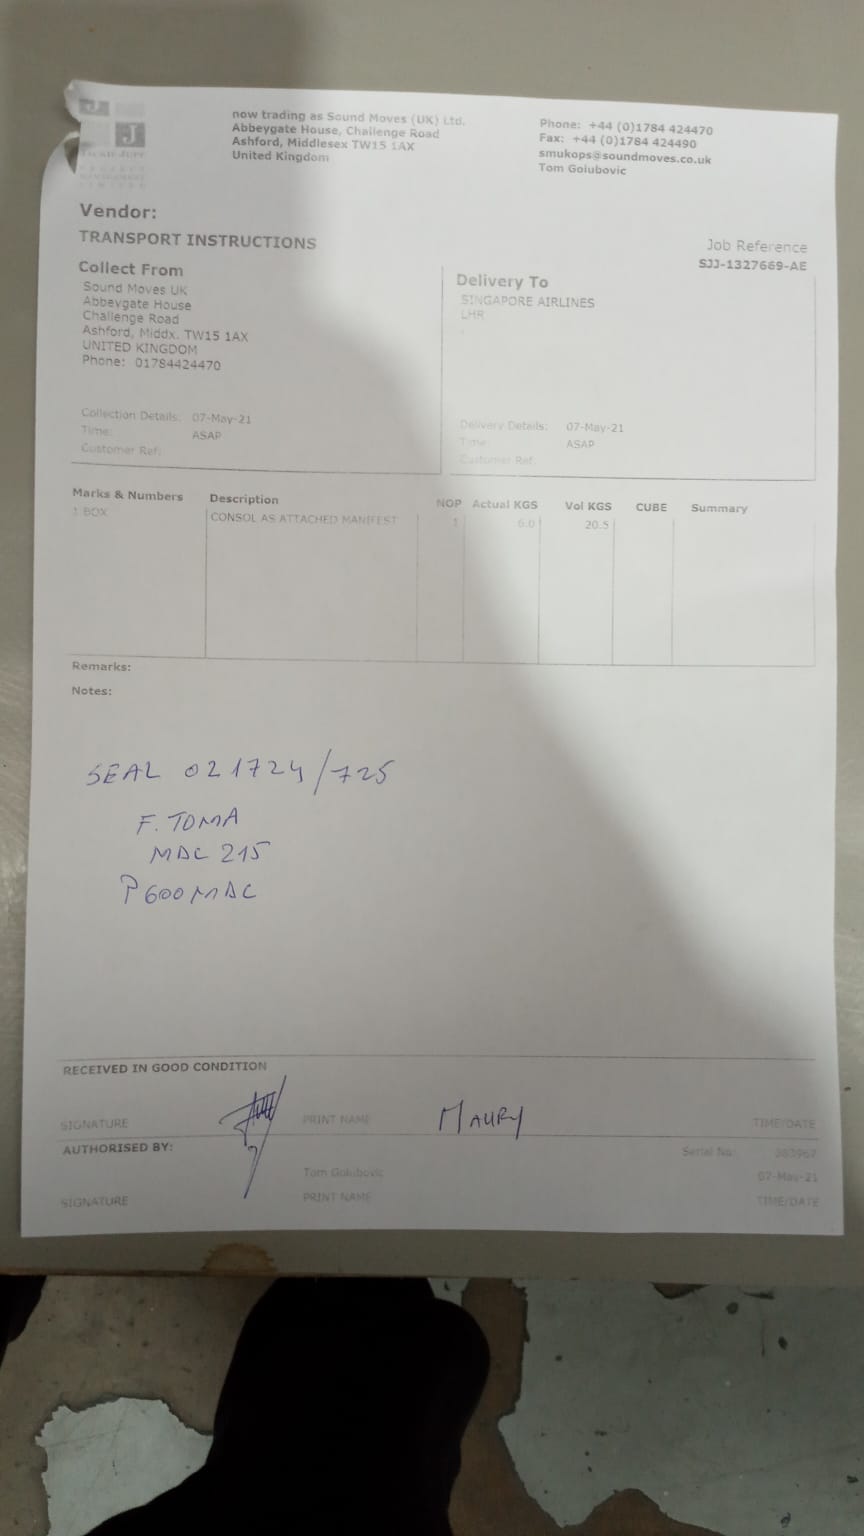 now trading as Sound Moves (UK) Ltd.
Abbeygate House, Challenge Road
Ashford, Middlesex TW15 1AX
United Kingdom
Phone: +44 (0)1784 424470
Fax: +44 (0)1784 424490
smukops@soundmoves.co.uk
Tom Golubovic
J
Vendor:
TRANSPORT INSTRUCTIONS
Job Reference
SJJ-1327669-AE
Collect From
Sound Moves UK
Abbeygate House
Challenge Road
Ashford, Middx. TW15 1AX
UNITED KINGDOM
Phone: 01784424470
Collection Details: 07-May-21
Time: ASAP
Customer Ref:
Delivery To
SINGAPORE AIRLINES
LHR
Delivery Details: 07-May-21
Time: ASAP
Customer Ref:
Marks & Numbers Description NOP Actual KGS Vol KGS CUBE Summary
1 BOX CONSOL AS ATTACHED MANIFEST 1 6.0 20.5
Remarks:
Notes:
SEAL 021724/725
F. TOMA
MDC 215
P600MDC
RECEIVED IN GOOD CONDITION
SIGNATURE PRINT NAME MAURY TIME/DATE
AUTHORISED BY: Serial No: 383967
Tom Golubovic 07-May-21
SIGNATURE PRINT NAME TIME/DATE